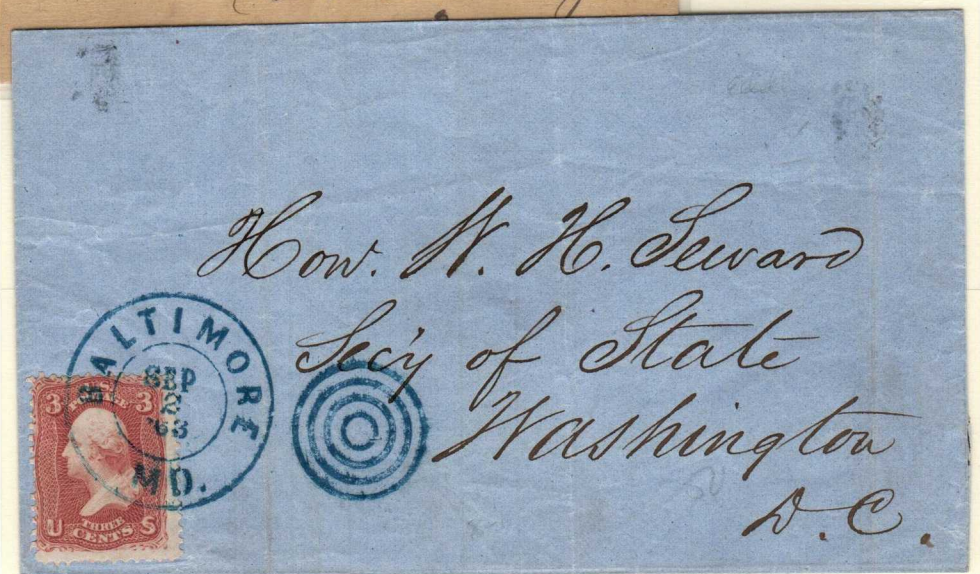 Hon. W. H. Seward
Sec'y of State
Washington
D. C.
BALTIMORE
SEP
2
'63
MD.
U S
3 3
U S
THREE
CENTS